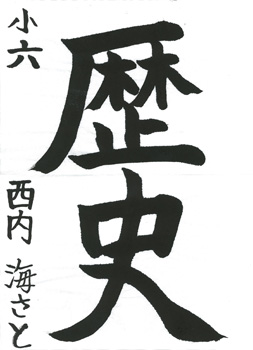 歴史
小六
西内海さと